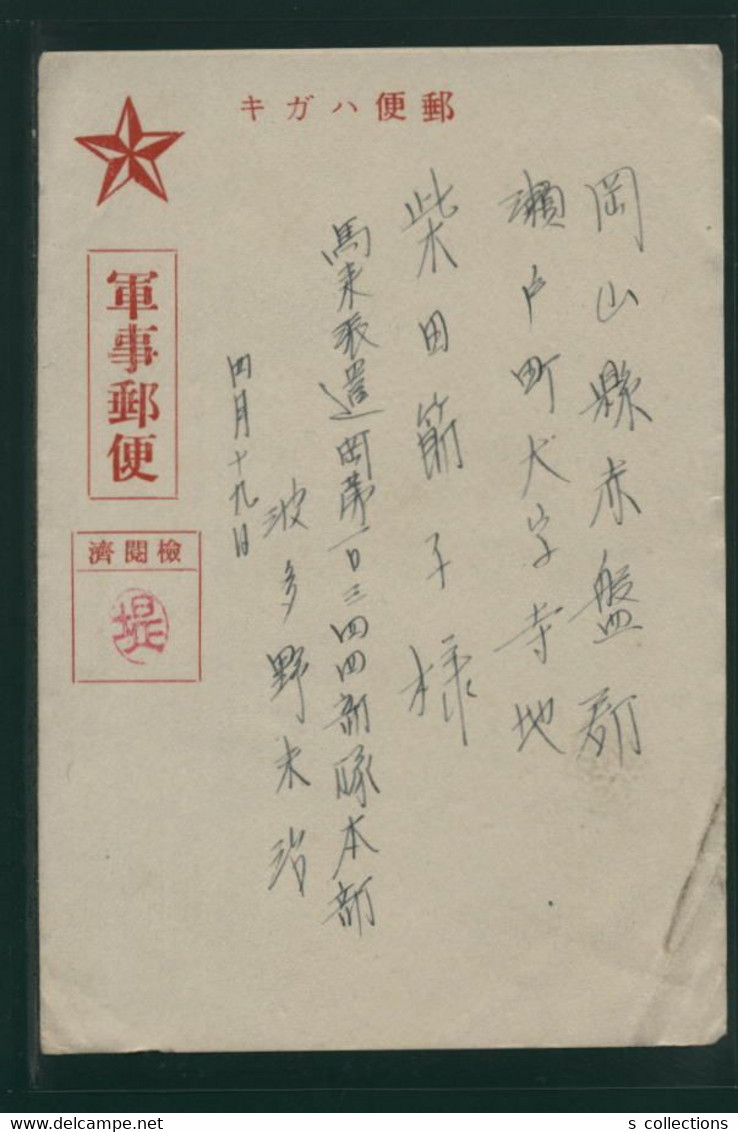 キガハ便郵
岡山縣赤盤郡
瀬戸町大字寺地
柴田節子様
馬来派遣岡第一〇三四四部隊本部
波多野末治
四月十九日
軍事郵便
濟閲檢
堤
s collections